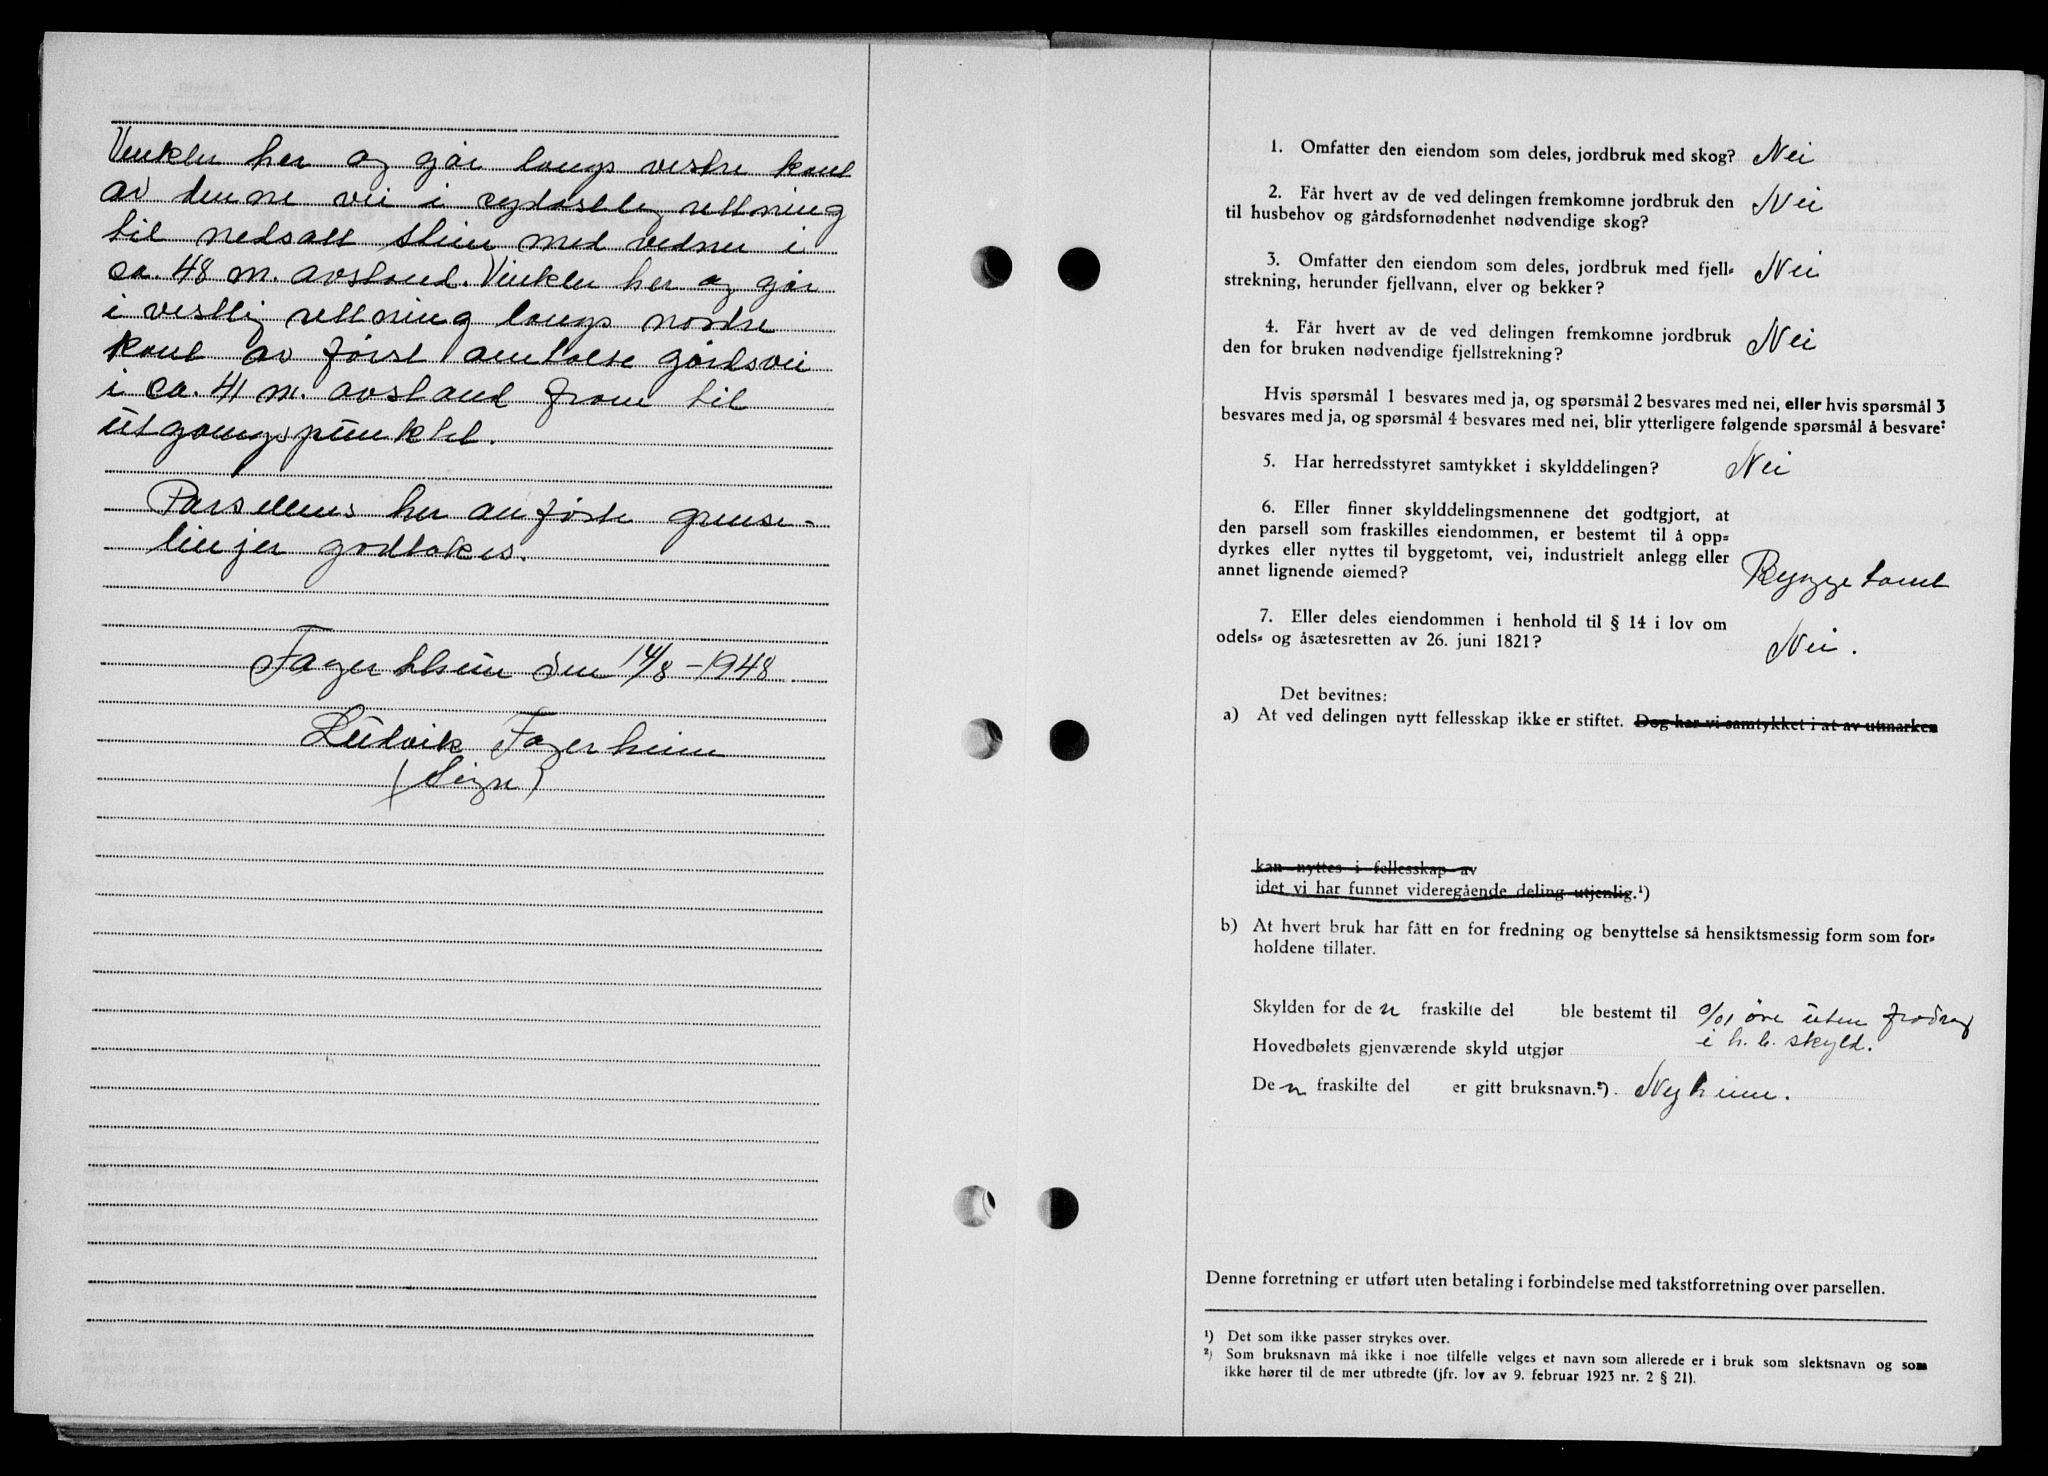 Vinkler her og går langs vestre kant
av denne vei i sydøstlig rettning
til nedsatt stein med vedner i
ca. 48 m. avstand. Vinkler her og går
i vestlig rettning langs nordre
kant av først omtalte gårdsvei
i ca. 41 m. avstand fram til
utgangspunktet.
Parsellens her anførte grense-
linjer godtakes.
Fagerheim den 14/8-1948
Ludvik Fagerheim
(Sign)
1. Omfatter den eiendom som deles, jordbruk med skog? Nei
2. Får hvert av de ved delingen fremkomne jordbruk den
til husbehov og gårdsfornødenhet nødvendige skog? Nei
3. Omfatter den eiendom som deles, jordbruk med fjell-
strekning, herunder fjellvann, elver og bekker? Nei
4. Får hvert av de ved delingen fremkomne jordbruk
den for bruken nødvendige fjellstrekning? Nei
Hvis spørsmål 1 besvares med ja, og spørsmål 2 besvares med nei, eller hvis spørsmål 3
besvares med ja, og spørsmål 4 besvares med nei, blir ytterligere følgende spørsmål å besvare:
5. Har herredsstyret samtykket i skylddelingen? Nei
6. Eller finner skylddelingsmennene det godtgjort, at
den parsell som fraskilles eiendommen, er bestemt til å opp-
dyrkes eller nyttes til byggetomt, vei, industrielt anlegg eller
annet lignende øiemed? Byggetomt
7. Eller deles eiendommen i henhold til § 14 i lov om
odels- og åsætesretten av 26. juni 1821? Nei.
Det bevitnes:
a) At ved delingen nytt fellesskap ikke er stiftet. Dog har vi samtykket i at av utmarken
kan nyttes i fellesskap av
idet vi har funnet videregående deling utjenlig.¹)
b) At hvert bruk har fått en for fredning og benyttelse så hensiktsmessig form som for-
holdene tillater.
Skylden for de n fraskilte del ble bestemt til 0/01 øre uten fradrag
i h. b. skyld.
Hovedbølets gjenværende skyld utgjør
De n fraskilte del er gitt bruksnavn.²) Nyheim.
Denne forretning er utført uten betaling i forbindelse med takstforretning over parsellen.
¹) Det som ikke passer strykes over.
²) Som bruksnavn må ikke i noe tilfelle velges et navn som allerede er i bruk som slektsnavn og som
ikke hører til de mer utbredte (jfr. lov av 9. februar 1923 nr. 2 § 21).